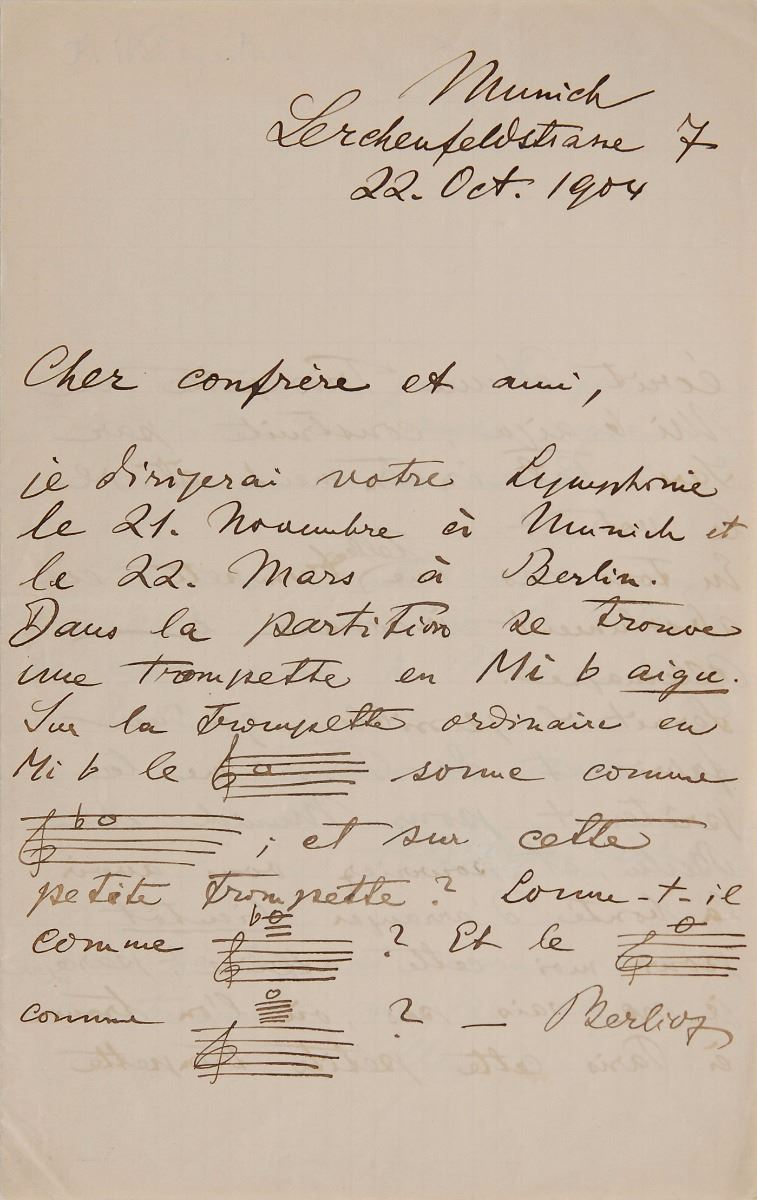 Munich
Lerchenfeldstrasse 7
22. Oct. 1904
Cher confrère et ami,
je dirigerai votre Symphonie
le 21. Novembre à Munich et
le 22. Mars à Berlin.
Dans la partition se trouve
une trompette en Mi b aigu.
Sur la trompette ordinaire en
Mi b le sonne comme
; et sur cette
petite trompette? Sonne-t-il
comme ? Et le
comme ? — Berlioz